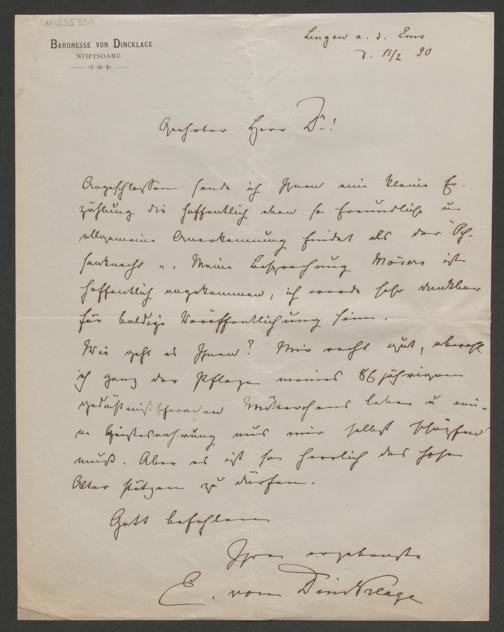 W-235931
BARONESSE VON DINCKLAGE
STIFTSDAME
Lingen a. d. Ems
d. 11/2 90
Geehrter Herr Dr.!
Angeschlossen sende ich Ihnen eine kleine Er-
zählung die hoffentlich eben so freundliche u
allgemeine Anerkennung findet als der "Och-
senknecht". Meine Besprechung Mösers ist
hoffentlich angekommen, ich werde sehr dankbar
für baldige Veröffentlichung sein.
Wie geht es Ihnen? Mir recht gut, obwohl
ich ganz der Pflege meines 86 jährigen
gedächtnißschwachen Mütterchens lebe u mei-
ne Geistesnahrung aus mir selbst schöpfen
muß. Aber es ist so herrlich das hohe
Alter stützen zu dürfen.
Gott befohlen
Ihre ergebenste
E. von Dincklage